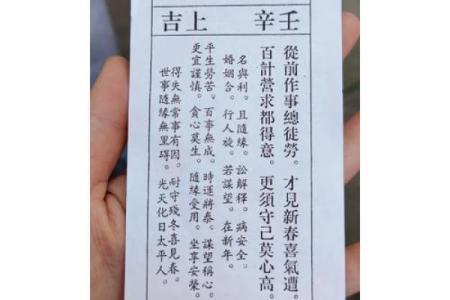 壬辛　上吉
從前作事總徒勞。才見新春喜氣遭。
百計營求都得意。更須守己莫心高。
名與利。且隨緣。訟解釋。病安全。
婚姻合。行人旋。若謀望。在新年。
平生勞苦。百事無成。時運將泰。謀望稱心。
更宜謹慎。貪心莫生。隨緣受用。坐享安榮。
得失無常事有因。耐守殘冬喜見春。
世事隨緣無罣礙。光天化日太平人。